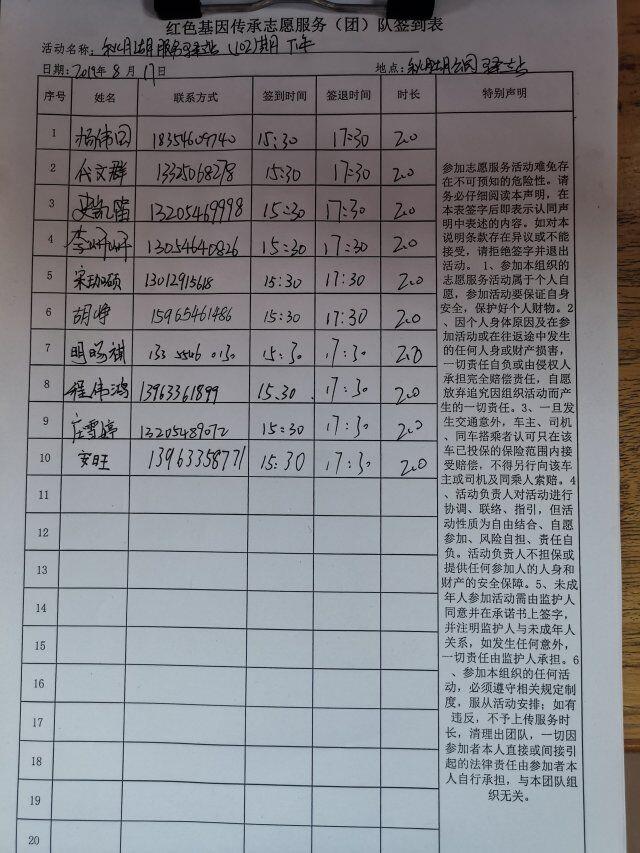 红色基因传承志愿服务（团）队签到表
活动名称：秋月湖服务驿站（102）期 下午
日期：2019年8月17日 地点：秋月湖公园驿站
序号 姓名 联系方式 签到时间 签退时间 时长 特别声明
1 杨伟国 18354609740 15:30 17:30 2.0
2 代文群 13325068278 15:30 17:30 2.0
3 13205469998 15:30 17:30 2.0
4 李 13054640826 15:30 17:30 2.0
5 宋 硕 13012915618 15:30 17:30 2.0
6 胡峥 15965461486 15:30 17:30 2.0
7 明旸祺 133 5546 0130 15:30 17:30 2.0
8 程伟鸿 13963361899 15.30 17:30 2.0
9 庄雪婷 13205489072 15:30 17:30 2.0
10 安旺 13963358771 15:30 17:30 2.0
11
12
13
14
15
16
17
18
19
20
参加志愿服务活动难免存
在不可预知的危险性。请
务必仔细阅读本声明，在
本表签字后即表示认同声
明中表述的内容。如对本
说明条款存在异议或不能
接受，请拒绝签字并退出
活动。 1、参加本组织的
志愿服务活动属于个人自
愿，参加活动要保证自身
安全，保护好个人财物。2
、因个人身体原因及在参
加活动或在往返途中发生
的任何人身或财产损害，
一切责任自负或由侵权人
承担完全赔偿责任，自愿
放弃追究因组织活动而产
生的一切责任。3、一旦发
生交通意外，车主、司机
、同车搭乘者认可只在该
车已投保的保险范围内接
受赔偿，不得另行向该车
主或司机及同乘人索赔。4
、活动负责人对活动进行
协调、联络、指引，但活
动性质为自由结合、自愿
参加、风险自担、责任自
负。活动负责人不担保或
提供任何参加人的人身和
财产的安全保障。5、未成
年人参加活动需由监护人
同意并在承诺书上签字，
并注明监护人与未成年人
关系，如发生任何意外，
一切责任由监护人承担。6
、参加本组织的任何活
动，必须遵守相关规定制
度，服从活动安排；如有
违反，不予上传服务时
长，清理出团队，一切因
参加者本人直接或间接引
起的法律责任由参加者本
人自行承担，与本团队组
织无关。